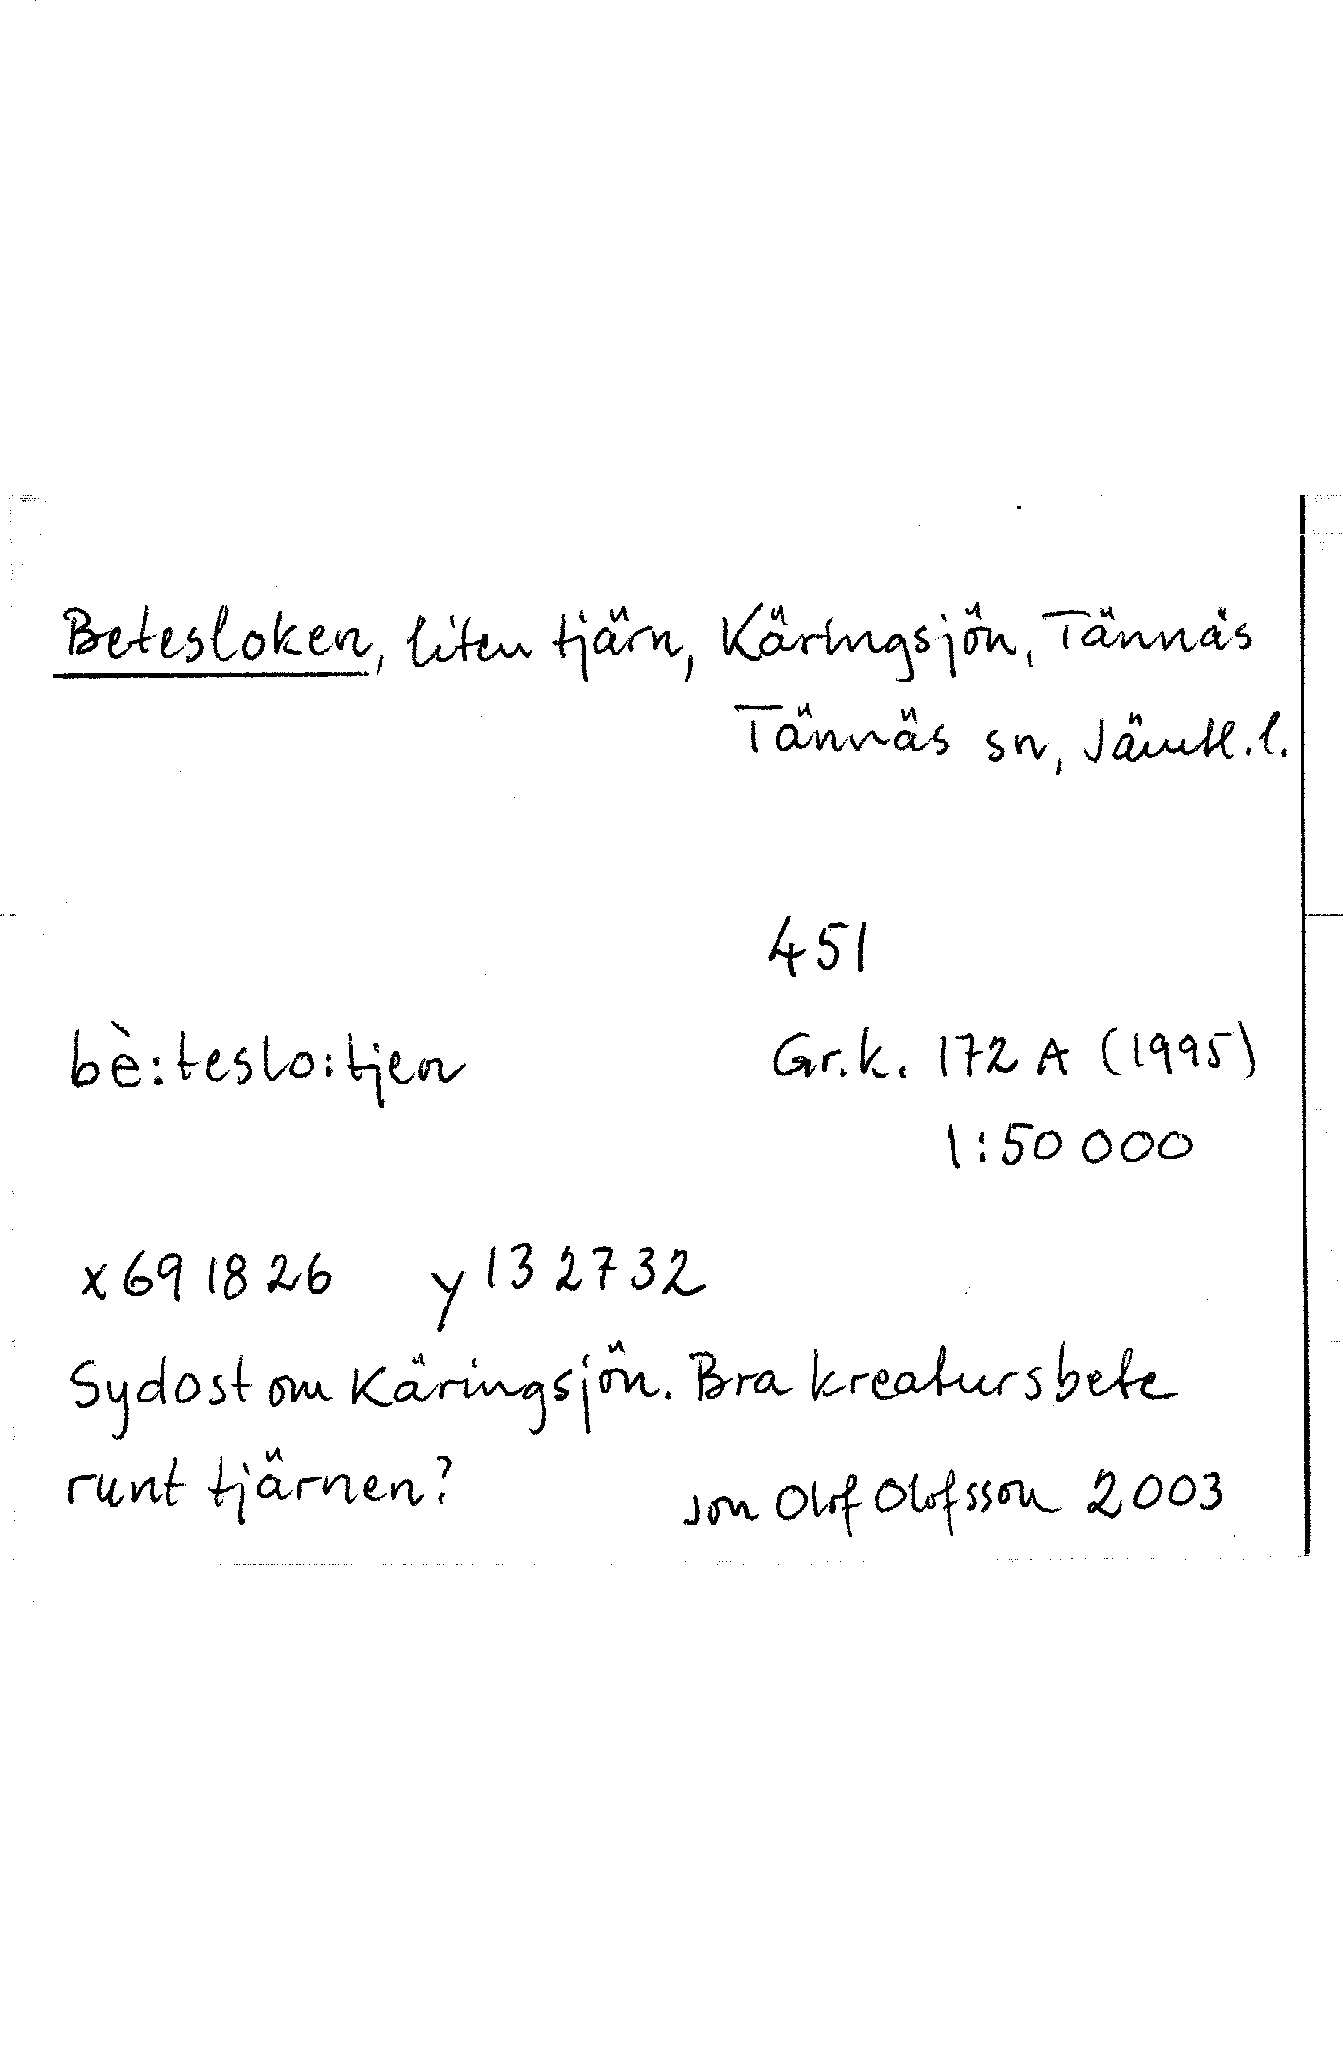 Betesloken, liten tjärn, Käringsjön, Tännäs
Tännäs sn, Jämtl.l.
451
bè:teslo:tjen
Gr.k. 172 A (1995)
1:50 000
x 69 18 26 y 13 27 32
Sydost om Käringsjön. Bra kreatursbete
runt tjärnen?
Jon Olof Olofsson 2003